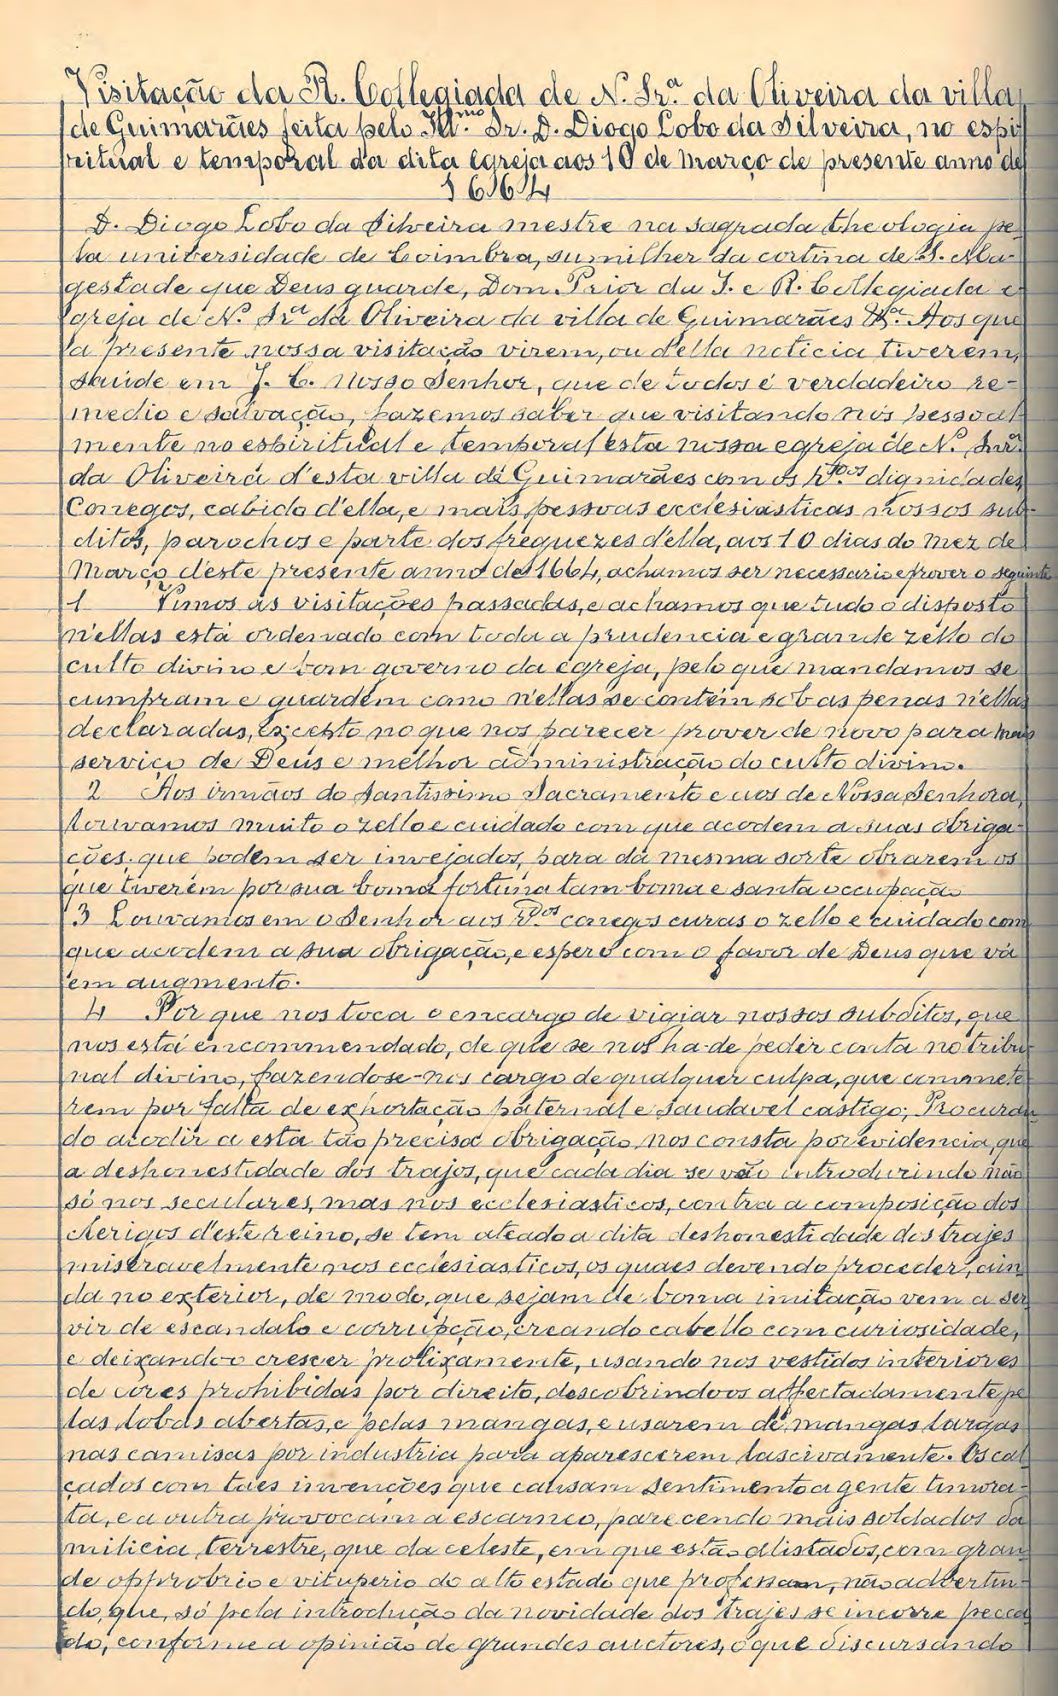 Visitação da R. Collegiada de N. Sr.ª da Oliveira da villa
de Guimarães feita pelo Ill.mo Sr. D. Diogo Lobo da Silveira, no espi-
ritual e temporal da dita egreja aos 10 de Março de presente anno de
1664
D. Diogo Lobo da Silveira mestre na sagrada theologia pe-
la universidade de Coimbra, sumilher da cortina de S. Ma-
gestade que Deus guarde, Dom Prior da I. e R. Collegiada e-
greja de N. Sr.ª da Oliveira da villa de Guimarães &ª. Aos que
a presente nossa visitação virem, ou d'ella noticia tiverem,
saúde em J. C. Nosso Senhor, que de todos é verdadeiro re-
medio e salvação, fazemos saber que visitando nós pessoal-
mente no espiritual e temporal esta nossa egreja de N. Snr.ª
da Oliveira d'esta villa de Guimarães com os R.dos dignidades,
Conegos, cabido d'ella, e mais pessoas ecclesiasticas nossos sub-
ditos, parochos e parte dos freguezes d'ella, aos 10 dias do mez de
Março d'este presente anno de 1664, achamos ser necessario e prover o seguinte
1 Vimos as visitações passadas, e achamos que tudo o disposto
n'ellas está ordenado com toda a prudencia e grande zello do
culto divino e bom governo da egreja, pelo que mandamos se
cumpram e guardem como n'ellas se contém sob as penas n'ellas
declaradas, excepto no que nos parecer prover de novo para mais
serviço de Deus e melhor administração do culto divino.
2 Aos irmãos do Santissimo Sacramento e aos de Nossa Senhora,
louvamos muito o zello e cuidado com que acodem a suas obriga-
ções, que podem ser invejados, para da mesma sorte obrarem os
que tiverem por sua boma fortuna tam boma e santa occupação
3 Louvamos em o Senhor aos R.dos conegos curas o zello e cuidado com
que acodem a sua obrigação, e espero com o favor de Deus que vá
em augmento.
4 Por que nos toca o encargo de vigiar nossos subditos, que
nos está encommendado, de que se nos ha-de peder conta no tribu-
nal divino, fazendo-se-nos cargo de qualquer culpa, que commete-
rem por falta de exhortação paternal e saudavel castigo; Procuran-
do acodir a esta tão precisa obrigação, nos consta por evidencia, que
a deshonestidade dos trajos, que cada dia se vão introdurindo não
só nos seculares, mas nos ecclesiasticos, contra a composição dos
clerigos d'este reino, se tem ateado a dita deshonestidade dos trajes
miseravelmente nos ecclesiasticos, os quaes devendo proceder, ain-
da no exterior, de modo, que sejam de boma imitação vem a ser-
vir de escandalo e corrupção, creando cabello com curiosidade,
e deixando-o crescer prolixamente, usando nos vestidos interiores
de cores prohibidas por direito, descobrindo-os affectadamente pe-
las lobas abertas, e pelas mangas, e usarem de mangas largas
nas camisas por industria para aparescerem lascivamente. Os cal-
çados com taes invenções que causam sentimento a gente timora-
ta, e a outra provocam a escarneo, parecendo mais soldados da
milicia terrestre, que da celeste, em que estão alistados, com gran-
de opprobrio e vituperio do alto estado que professam, não advertin-
do, que, só pela introducção da novidade dos trajes se incorre pecca-
do, conforme a opinião de grandes auctores, o que discursando